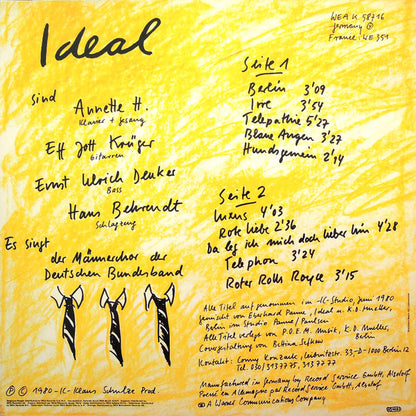 Ideal
WEA K 58716
Germany Ⓟ
France: WE 351
sind
Annette H.
Klavier + Gesang
Eff Jott Krüger
Gitarren
Ernst Ulrich Deuker
Bass
Hans Behrendt
Schlagzeug
Es singt
der Männerchor der
Deutschen Bundesband
Seite 1
Berlin 3'09
Irre 3'54
Telepathie 5'27
Blaue Augen 3'27
Hundsgemein 2'14
Seite 2
Luxus 4'03
Rote Liebe 2'36
Da leg ich mich doch lieber hin 4'28
Telephon 3'24
Roter Rolls Royce 3'15
Alle Titel aufgenommen im -IC-Studio, Juni 1980
Gemischt von Eberhard Panne, Ideal u. K.D. Mueller,
Berlin im Studio Panne/Paulsen
Alle Titel verlegt von P.O.E.M. Musik, K.D. Mueller,
Berlin
Covergestaltung von Bettina
Kontakt: Conny Konzack, Leibnitzstr. 33-D-1000 Berlin 12
Tel. 030/3137775, 3137777
Manufactured in Germany by Record Service GmbH, Alsdorf
Presse en Allemagne par Record Service GmbH, Alsdorf
A Warner Communications Company
Ⓟ © 1980 -IC- Klaus Schulze Prod.